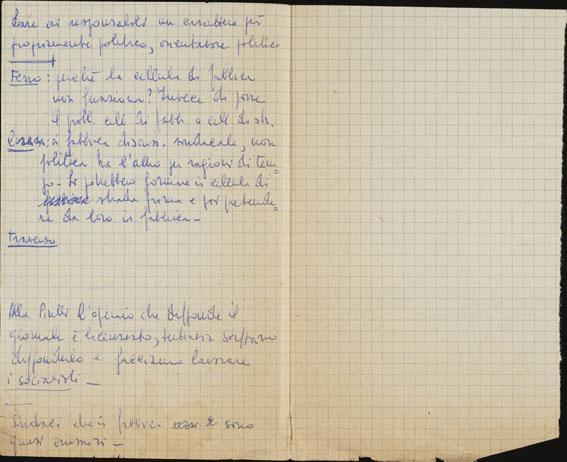 Dare ai responsabili un carattere più
propriamente politico, orientatore politico
Ferro: perché la cellula di fabbrica
non funziona? Invece di porre
il probl. cell. di fabb. o cell. di str.
in fabbrica discuss. sindacale, non
politica tra l'altro per ragioni di tem=
po - Si potrebbero formare in cellula di
strada prima e poi pretende=
re da loro in fabbrica -
Traverso
Alla l'operaio che diffonde il
giornale è licenziato, tuttavia
e facciamo lavorare
i socialisti -
Sindaci che in fabbrica sono
quasi -